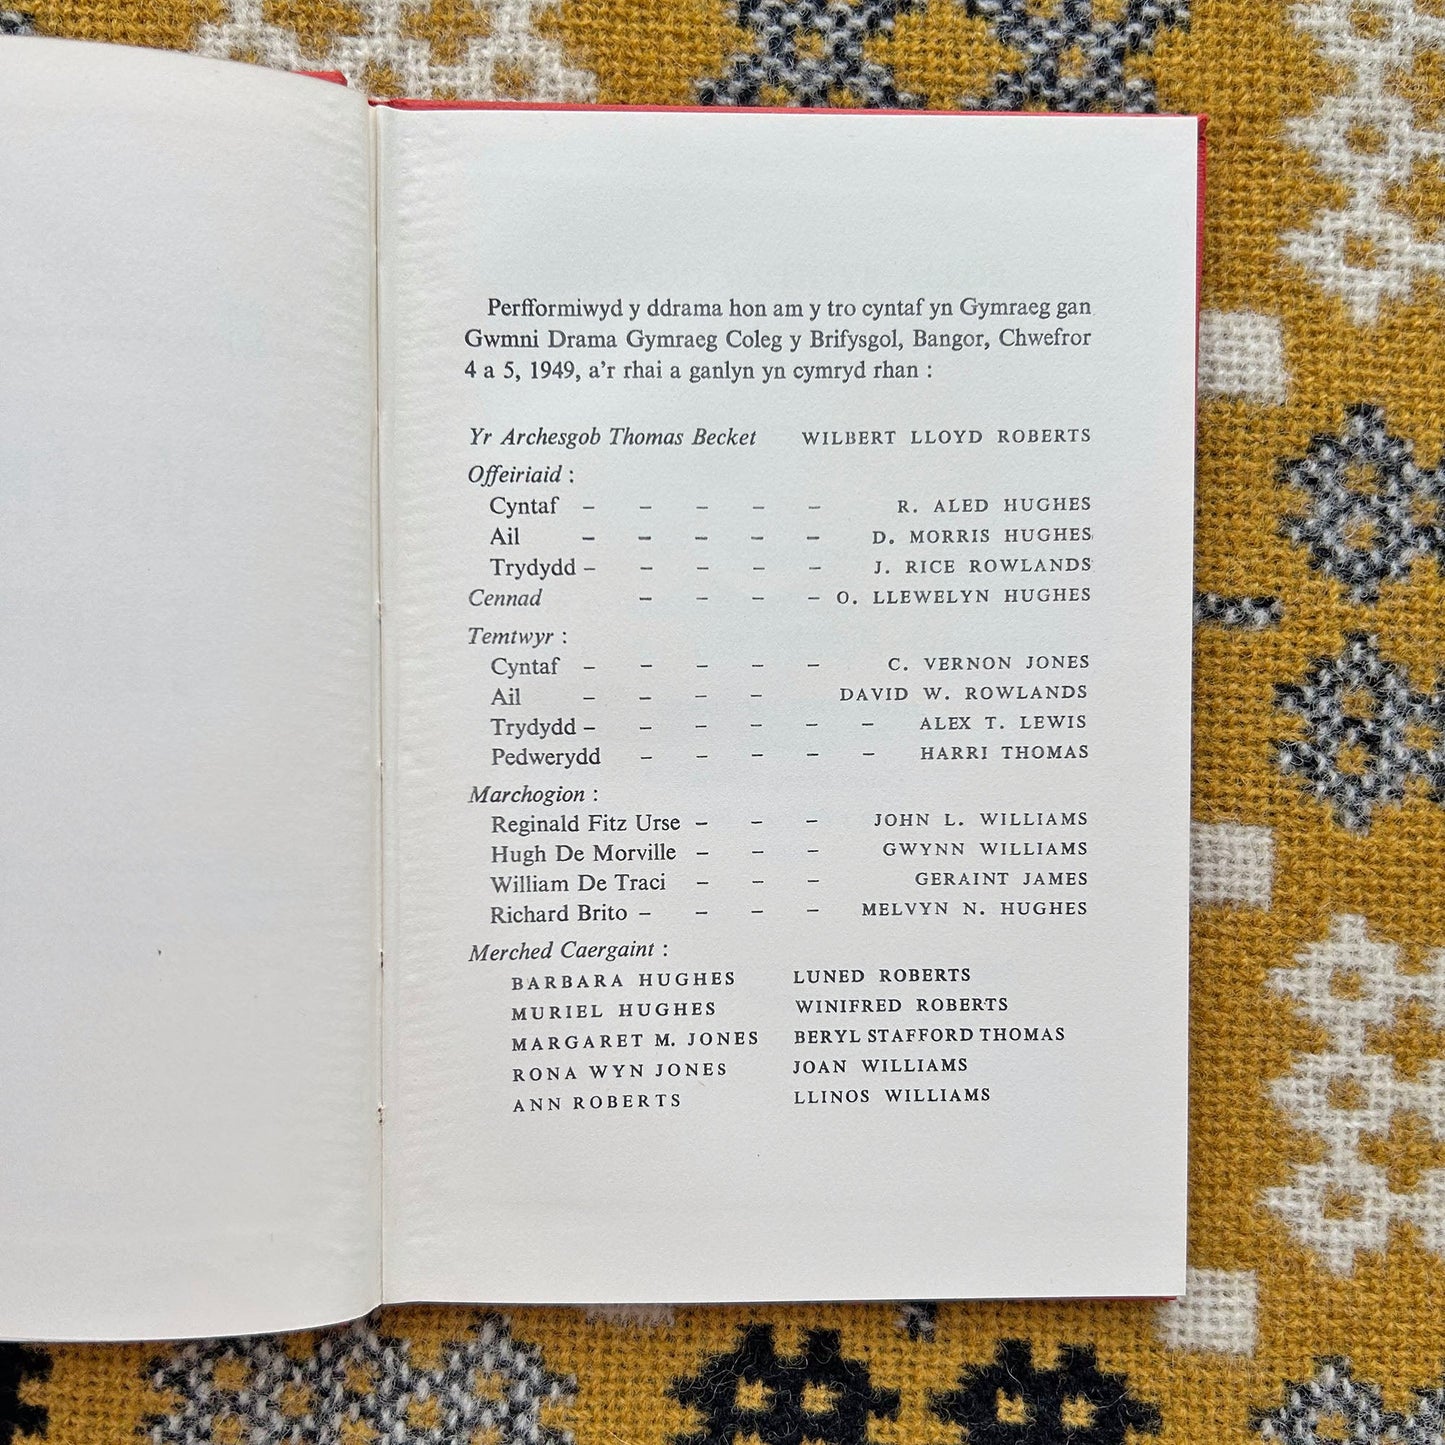 Perfformiwyd y ddrama hon am y tro cyntaf yn Gymraeg gan
Gwmni Drama Gymraeg Coleg y Brifysgol, Bangor, Chwefror
4 a 5, 1949, a'r rhai a ganlyn yn cymryd rhan :
Yr Archesgob Thomas Becket WILBERT LLOYD ROBERTS
Offeiriaid :
Cyntaf – – – – – R. ALED HUGHES
Ail – – – – – D. MORRIS HUGHES
Trydydd – – – – – J. RICE ROWLANDS
Cennad – – – – O. LLEWELYN HUGHES
Temtwyr :
Cyntaf – – – – – C. VERNON JONES
Ail – – – – DAVID W. ROWLANDS
Trydydd – – – – – – ALEX T. LEWIS
Pedwerydd – – – – – HARRI THOMAS
Marchogion :
Reginald Fitz Urse – – – JOHN L. WILLIAMS
Hugh De Morville – – – GWYNN WILLIAMS
William De Traci – – – GERAINT JAMES
Richard Brito – – – – MELVYN N. HUGHES
Merched Caergaint :
BARBARA HUGHES LUNED ROBERTS
MURIEL HUGHES WINIFRED ROBERTS
MARGARET M. JONES BERYL STAFFORD THOMAS
RONA WYN JONES JOAN WILLIAMS
ANN ROBERTS LLINOS WILLIAMS